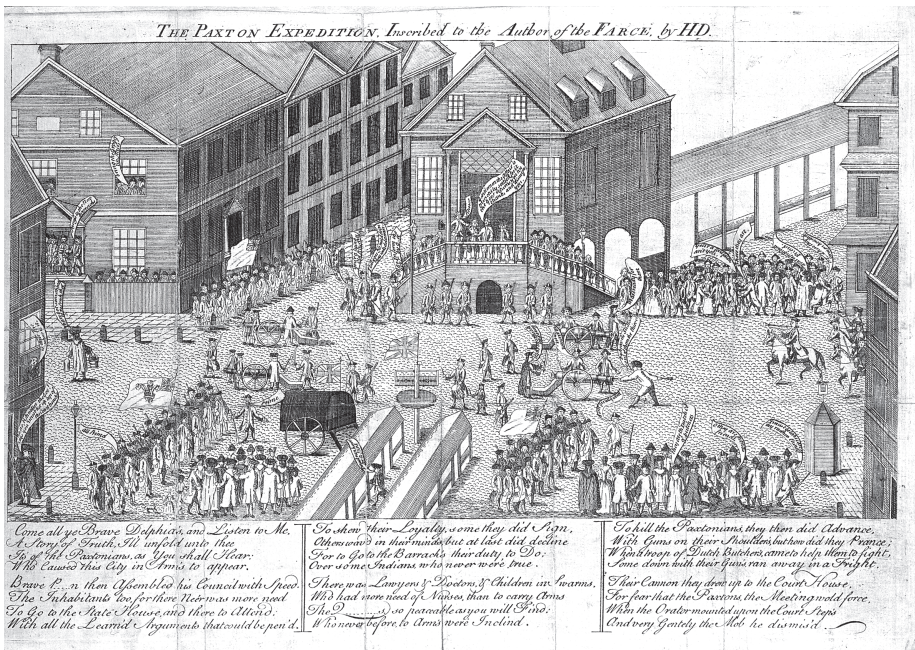 THE PAXTON EXPEDITION, Inscribed to the Author of the FARCE, by HD.
Come all ye Brave Delphia's, and Listen to Me,
A Story of Truth, I'll unfold unto thee
Its of the Paxtonians, as You shall Hear;
Who Caused this City in Arms to appear.
Brave P...n then Assembled his Council with Speed.
The Inhabitants too, for there Ne'er was more need
To Go to the State House, and there to Attend:
With all the Learn'd Arguments that could be pen'd.
To shew their Loyalty, some they did Sign,
Others wav'd in their minds, but at last did decline
For to Go to the Barracks their duty to Do;
Over some Indians, who never were true.
There was Lawyers & Doctors, & Children in Swarms,
Who had more need of Nurses, than to carry Arms
The Q.........s so peaceable as you will Find;
Who never before, to Arms were Inclind.
To kill the Paxtonians, they then did Advance,
With Guns on their Shoulders, but how did they Prance;
When a troop of Dutch Butchers, came to help them to fight,
Some down with their Guns, ran away in a Fright.
Their Cannon they drew up to the Court House,
For fear that the Paxtons, the Meeting wold force,
When the Orator mounted upon the Court Steps
And very Gentely the Mob he dismis'd